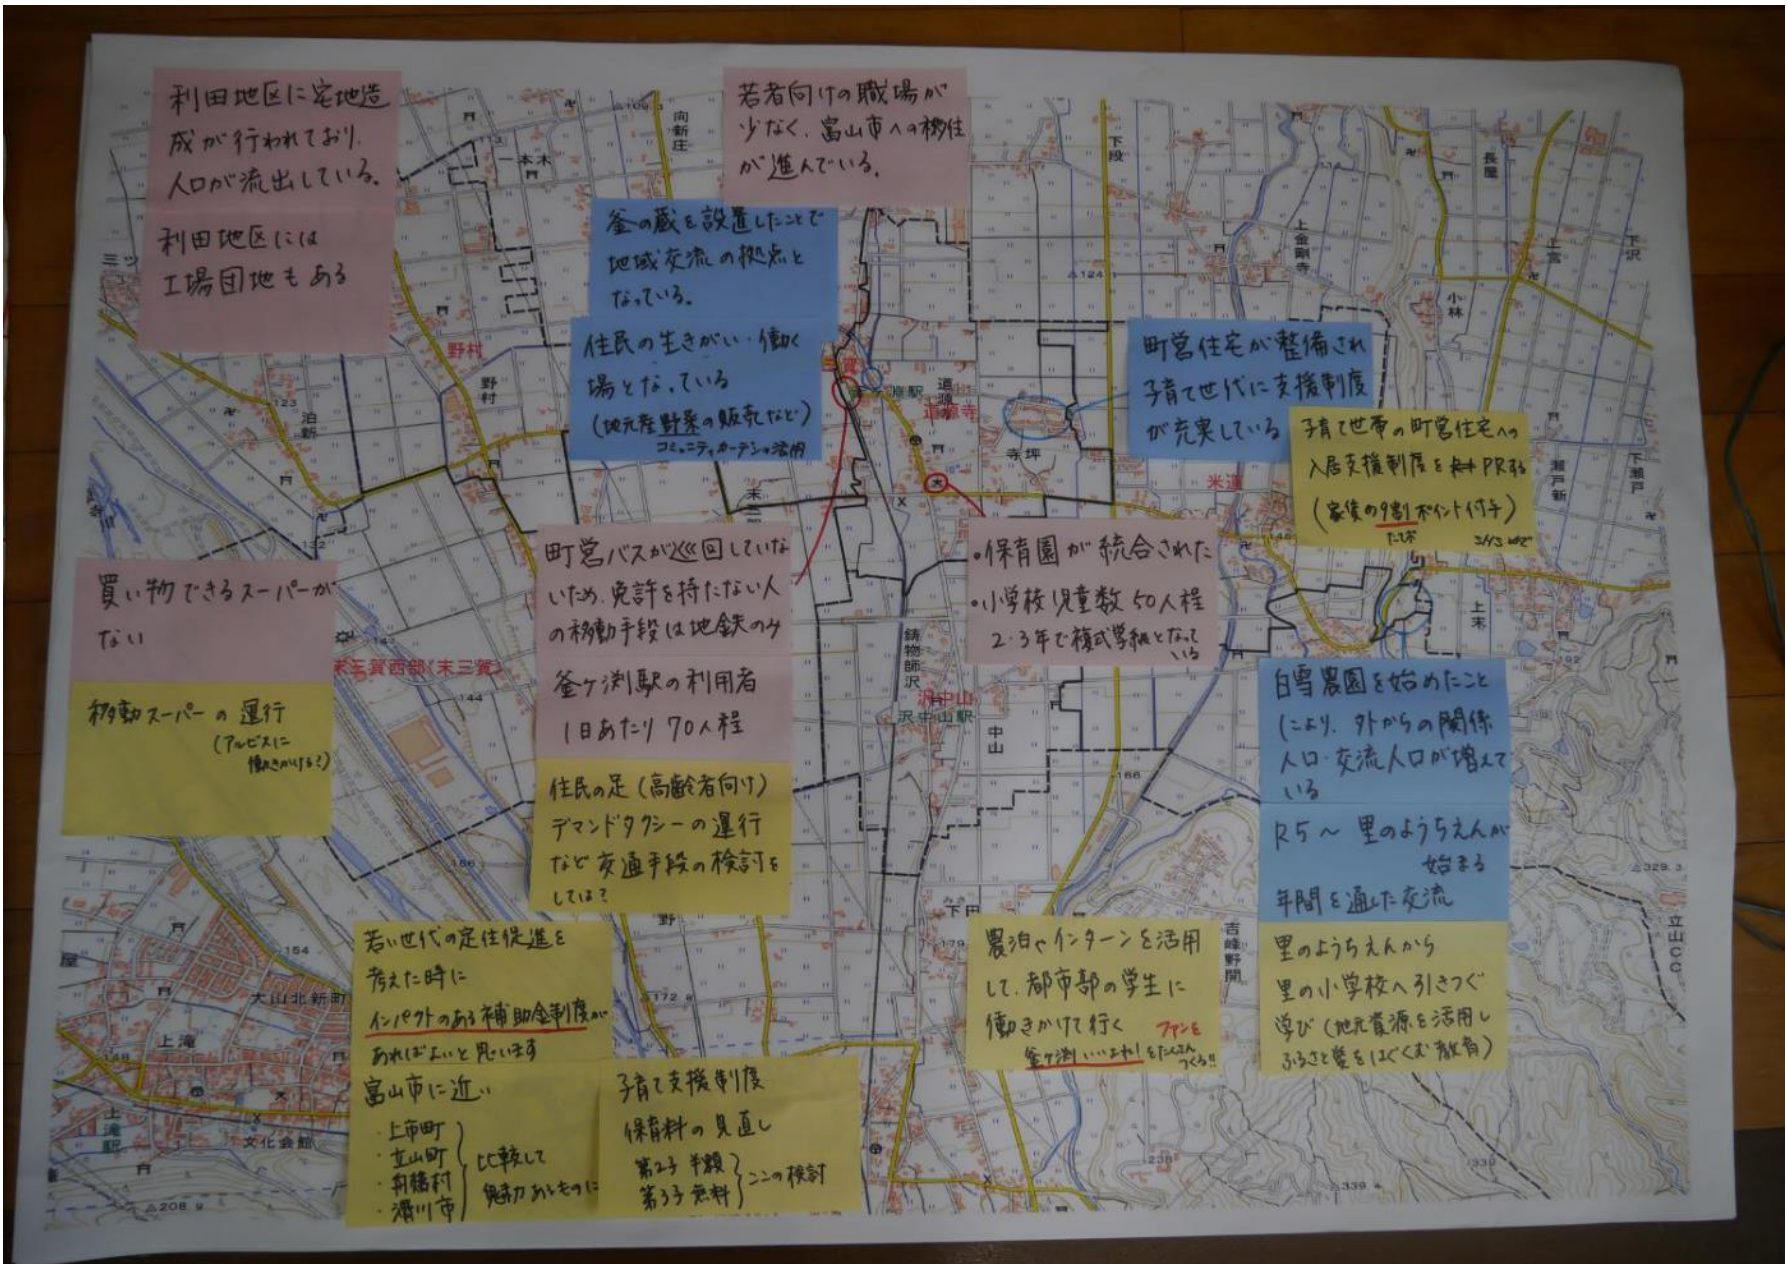 利田地区に宅地造
成が行われており、
人口が流出している。
利田地区には
工場団地もある
若者向けの職場が
少なく、富山市への移住
が進んでいる。
釜の蔵を設置したことで
地域交流の拠点と
なっている。
住民の生きがい・働く
場となっている
(地元産野菜の販売など)
コミュニティガーデンの活用
町営住宅が整備され
子育て世代に支援制度
が充実している
子育て世帯の町営住宅への
入居支援制度を PRする
(家賃の9割ポイント付与)
買い物できるスーパーが
ない
移動スーパーの運行
(アルビスに
働きかける?)
町営バスが巡回していな
いため、免許を持たない人
の移動手段は地鉄のみ
釜ヶ渕駅の利用者
1日あたり 70人程
住民の足(高齢者向け)
デマンドタクシーの運行
など交通手段の検討を
しては?
・保育園が統合された
・小学校児童数 50人程
2・3年で複式学級となって
いる
白雪農園を始めたこと
により、外からの関係
人口・交流人口が増えて
いる
R5~ 里のようちえんが
始まる
年間を通した交流
里のようちえんから
里の小学校へ引きつぐ
学び(地元資源を活用し
ふるさと愛をはぐくむ教育)
農泊やインターンを活用
して、都市部の学生に
働きかけて行く
釜ヶ渕いいよね!をたくさん
ファンを
つくる!!
若い世代の定住促進を
考えた時に
インパクトのある補助金制度が
あればよいと思います
富山市に近い
・上市町
・立山町
・舟橋村
・滑川市
比較して
魅力あるものに
子育て支援制度
保育料の見直し
第2子 半額
第3子 無料
ここの検討
向新庄
一本木
下段
長屋
上金剛寺
上宮
下沢
小林
三ツ
野村
野村
泊新
123
124
道源寺
寺坪
米道
146
瀬戸新
下瀬戸
上末
132
143
末三賀西部(末三賀)
144
鋳物師沢
沢中山
沢中山駅
中山
166
166
下田
179
吉峰野開
329.3
立山CC
野
172
154
大山北新町
屋
上滝
148
上滝駅
文化会館
208
238
339
339.4